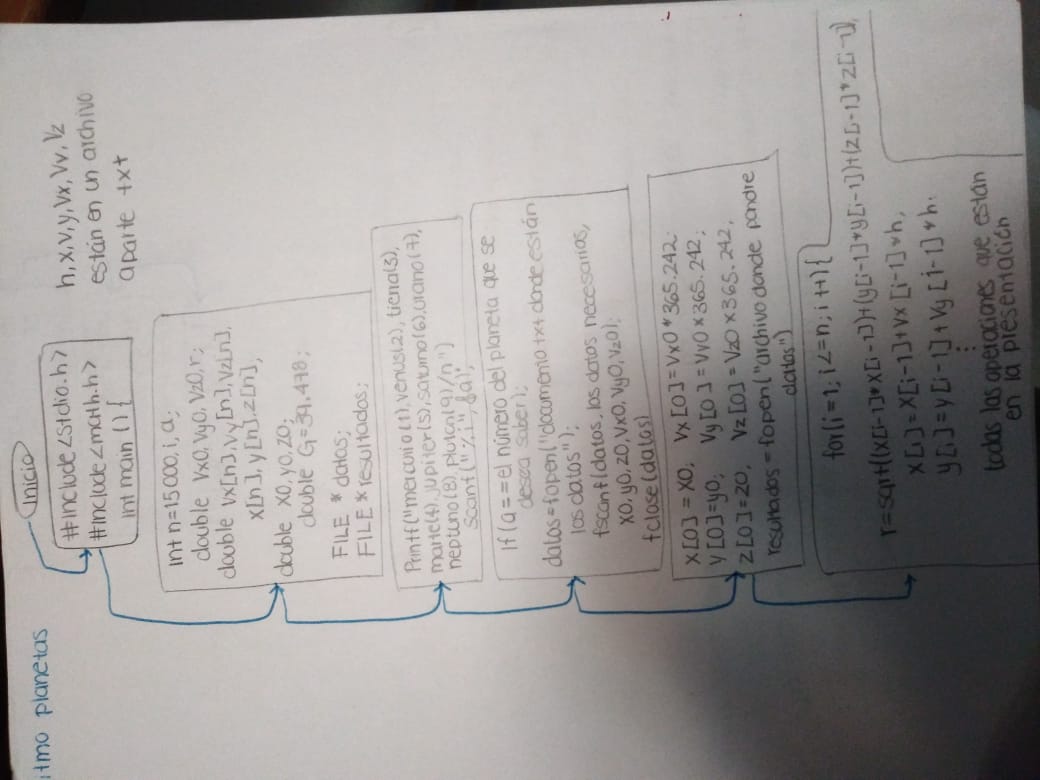 itmo planetas
Inicio
#include <stdio.h>
#include <math.h>
int main () {
h, x, v, y, Vx, Vv, Vz
están en un archivo
aparte txt
int n=15000, i, a;
double Vx0, Vy0, Vz0, r;
double vx[n], vy[n], vz[n],
x[n], y[n], z[n],
double x0, y0, z0;
double G=39.478;
FILE * datos;
FILE * resultados;
Printf("mercurio(1), venus(2), tierra(3),
marte(4), jupiter(5), saturno(6), urano(7),
neptuno(8), pluton(9)/n")
Scanf("%i", &a);
If (a== el número del planeta que se
desea saber);
datos=fopen("documento txt donde están
los datos");
fscanf(datos, los datos necesarios,
x0, y0, z0, Vx0, Vy0, Vz0);
fclose(datos)
x[0] = x0, Vx[0] = Vx0 * 365.242.
y[0] = y0, Vy[0] = Vy0 x 365.242;
z[0] = z0, Vz[0] = Vz0 x 365.242,
resultados = fopen("archivo donde pondre
datos")
for(i=1; i<=n; i++){
r=sqrt((x[i-1]*x[i-1])+(y[i-1]*y[i-1])+(z[i-1]*z[i-1]),
x[i]=x[i-1]+Vx[i-1]*h,
y[i]=y[i-1]+Vy[i-1]*h.
todas las operaciones que están
en la presentación